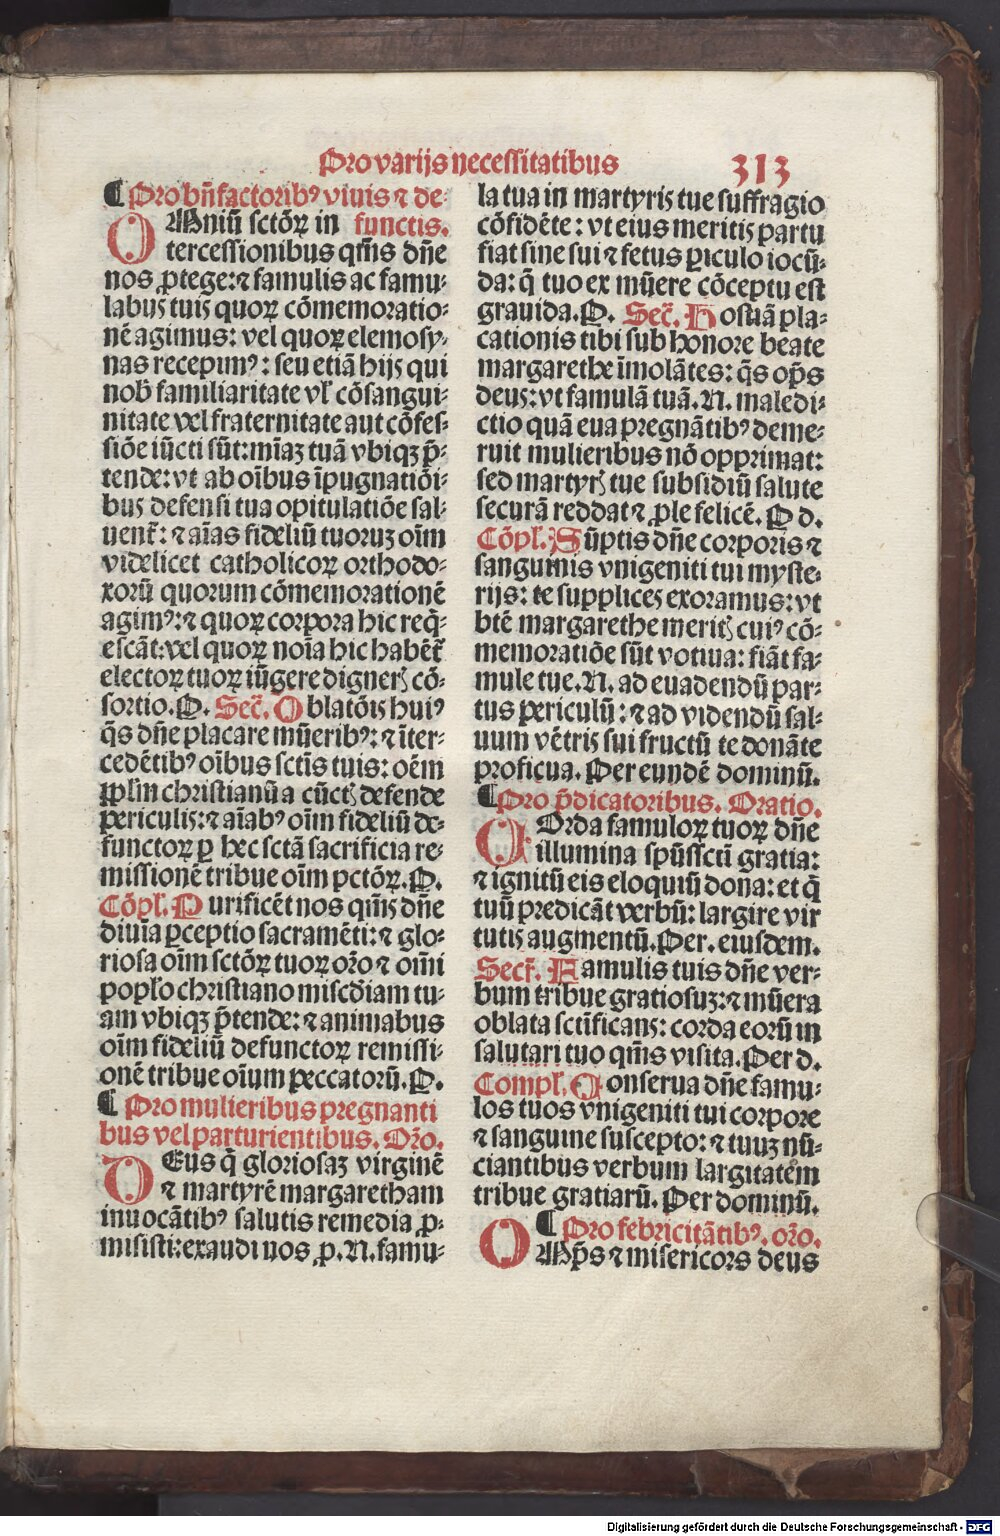 Pro varijs necessitatibus 313
¶ Pro bn̄factoribꝰ viuis ⁊ de-
functis.
OMniū sctōꝝ in
tercessionibus qm̄s dn̄e
nos ꝓtege: ⁊ famulis ac famu-
labus tuis quoꝝ cōmemoratio-
nē agimus: vel quoꝝ elemosy-
nas recepimꝰ: seu etiā hijs qui
nob̄ familiaritate vl̓ cōsangui-
nitate vel fraternitate aut cōfes-
siōe iūcti sūt: mīaꝫ tuā vbiqꝫ p̄-
tende: vt ab oībus īpugnatiōi-
bus defensi tua opitulatiōe sal-
uent̄: ⁊ aīas fideliū tuoruꝫ oīm
videlicet catholicoꝝ orthodo-
xorū quorum cōmemorationē
agimꝰ: ⁊ quoꝝ corpora hic req̄-
escāt: vel quoꝝ noīa hic habēt̄
electoꝝ tuoꝝ iūgere digneris cō-
sortio. P. Sec̄. Oblatōis huiꝰ
q̄s dn̄e placare mūeribꝰ: ⁊ īter-
cedētibꝰ oībus sctīs tuis: oēm
ppl̄m christianū a cūctis defende
periculis: ⁊ aīabꝰ oīm fideliū de-
functoꝝ ꝑ hec sctā sacrificia re-
missionē tribue oīm pctōꝝ. P.
Cōpl̄. Purificēt nos qm̄s dn̄e
diuīa ꝑceptio sacramēti: ⁊ glo-
riosa oīm sctōꝝ tuoꝝ or̄o ⁊ om̄i
popl̓o christiano miscd̄iam tu-
am vbiqꝫ p̄tende: ⁊ animabus
oīm fideliū defunctoꝝ remissi-
onē tribue oīum peccatorū. P.
¶ Pro mulieribus pregnanti
bus vel parturientibus. Or̄o.
DEus q̄ gloriosaꝫ virginē
⁊ martyrē margaretham
inuocātibꝰ salutis remedia ꝓ-
misisti: exaudi nos ꝓ. N. famu-
la tua in martyris tue suffragio
cōfidēte: vt eius meritis partu
fiat sine sui ⁊ fetus ꝑiculo iocū-
da: q̄ tuo ex mūere cōceptu est
grauida. P. Sec̄. Hostiā pla-
cationis tibi sub honore beate
margarethe īmolātes: q̄s op̄s
deus: vt famulā tuā. N. maledi-
ctio quā eua pregnātibꝰ deme-
ruit mulieribus nō opprimat:
sed martyris tue subsidiū salute
securā reddat ⁊ ꝓle felicē. P d.
Cōpl̄. Sūptis dn̄e corporis ⁊
sanguinis vnigeniti tui myste-
rijs: te supplices exoramus: vt
btē margarethe meritis cuiꝰ cō-
memoratiōe sūt votiua: fiāt fa-
mule tue. N. ad euadendū par-
tus periculū: ⁊ ad videndū sal-
uum vētris sui fructū te donāte
proficua. Per eundē dominū.
¶ Pro p̄dicatoribus. Oratio.
COrda famuloꝝ tuoꝝ dn̄e
illumina spūssctī gratia:
⁊ ignitū eis eloquiū dona: et q̄
tuū predicāt verbū: largire vir
tutis augmentū. Per. eiusdem.
Secr̄. Famulis tuis dn̄e ver-
bum tribue gratiosuꝫ: ⁊ mūera
oblata sctīficans: corda eorū in
salutari tuo qm̄s visita. Per d.
Compl̄. Conserua dn̄e famu-
los tuos vnigeniti tui corpore
⁊ sanguine suscepto: ⁊ tuuꝫ nū-
ciantibus verbum largitatem
tribue gratiarū. Per dominū.
¶ Pro febricitātibꝰ. or̄o.
OMp̄s ⁊ misericors deus
Digitalisierung gefördert durch die Deutsche Forschungsgemeinschaft - DFG